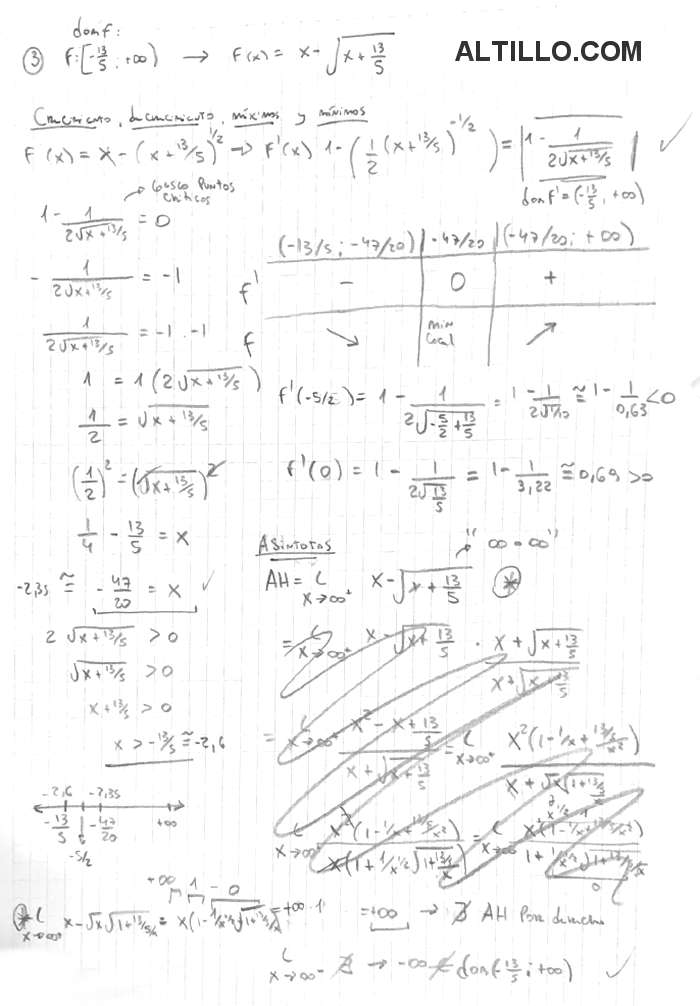 domf:
ALTILLO.COM
③ f: [-13/5 ; +∞) → f(x) = x - √(x + 13/5)
Crecimiento, decrecimiento, máximos y mínimos
F (x) = x - (x + 13/5)^1/2 → F'(x) 1 - (1/2 (x + 13/5)^-1/2) = |1 - 1/(2√(x + 13/5))| ✓
domf' = (-13/5 ; +∞)
→ busco Puntos críticos
1 - 1/(2√(x + 13/5)) = 0
- 1/(2√(x + 13/5)) = -1
1/(2√(x + 13/5)) = -1 . -1
1 = 1 (2√(x + 13/5))
1/2 = √(x + 13/5)
(1/2)² = (√(x + 13/5))²
1/4 - 13/5 = x
-2,35 ≅ -47/20 = x ✓
2 √(x + 13/5) > 0
√(x + 13/5) > 0
x + 13/5 > 0
x > -13/5 ≅ -2,6
-2,6 -2,35
-13/5 -47/20 +∞
-5/2
(-13/5 ; -47/20) | -47/20 | (-47/20 ; +∞)
f' - 0 +
f ↘ min local ↗
f'(-5/2) = 1 - 1/(2√(-5/2 + 13/5)) = 1 - 1/(2√1/10) ≅ 1 - 1/0,63 < 0
f'(0) = 1 - 1/(2√(13/5)) = 1 - 1/3,22 ≅ 0,69 > 0
Asíntotas
"∞ - ∞"
AH = L x→∞⁺ x - √(x + 13/5) ⊛
= L x→∞⁺ x - √(x + 13/5) . (x + √(x + 13/5))/(x + √(x + 13/5))
= L x→∞⁺ (x² - x + 13/5)/(x + √(x + 13/5)) = L x→∞⁺ x²(1 - 1/x + 13/5/x²)/(x + √x√(1 + 13/5/x))
L x→∞⁺ x²(1 - 1/x + 13/5/x²)/(x(1 + 1/x^1/2 √(1 + 13/5/x))) = L x→∞⁺ x(1 - 1/x + 13/5/x²)/(1 + 1/x^1/2 √(1 + 13/5/x))
+∞ 1 - 0
⊛ L x→∞⁺ x - √x √(1 + 13/5/x) = x(1 - 1/x^1/2 √(1 + 13/5/x)) = +∞ . 1 = +∞ → ∄ AH Por derecha
L x→∞⁻ ∄ → -∞ ∉ dom(-13/5 ; +∞) ✓